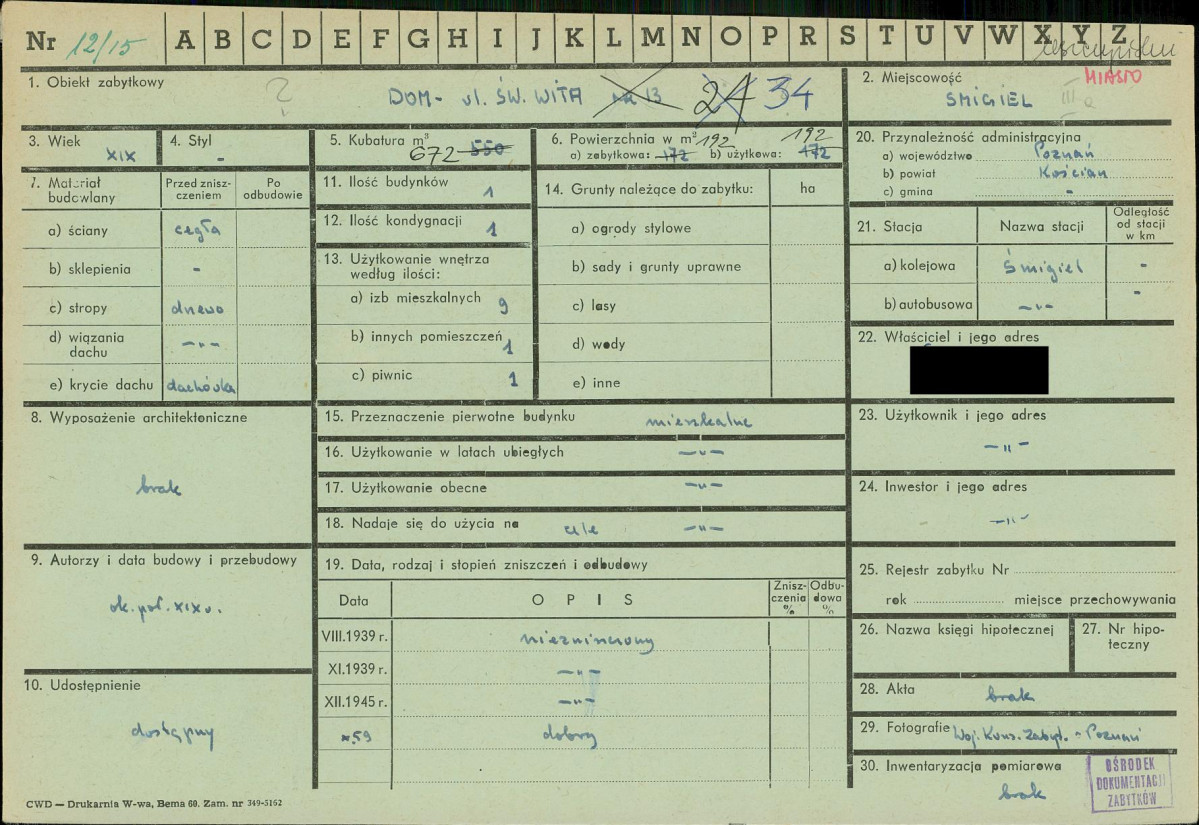 Nr 12/15 A B C D E F G H I J K L M N O P R S T U V W X Y Z
1. Obiekt zabytkowy
DOM - ul. ŚW. WITA nr 13 24 34
2. Miejscowość
MIASTO
ŚMIGIEL III a
3. Wiek
XIX
4. Styl
-
5. Kubatura m³
672 550
6. Powierzchnia w m² 192 192
a) zabytkowa: 172 b) użytkowa: 172
20. Przynależność administracyjna
a) województwo Poznań
b) powiat Kościan
c) gmina -
7. Materiał budowlany
Przed zniszczeniem
Po odbudowie
a) ściany cegła
b) sklepienia -
c) stropy drewno
d) wiązania dachu -"-
e) krycie dachu dachówka
11. Ilość budynków 1
12. Ilość kondygnacji 1
13. Użytkowanie wnętrza
według ilości:
a) izb mieszkalnych 9
b) innych pomieszczeń 1
c) piwnic 1
14. Grunty należące do zabytku: ha
a) ogrody stylowe
b) sady i grunty uprawne
c) lasy
d) wody
e) inne
21. Stacja Nazwa stacji Odległość od stacji w km
a) kolejowa Śmigiel -
b) autobusowa -"- -
22. Właściciel i jego adres
8. Wyposażenie architektoniczne
brak
15. Przeznaczenie pierwotne budynku mieszkalne
16. Użytkowanie w latach ubiegłych -"-
17. Użytkowanie obecne -"-
18. Nadaje się do użycia na cele -"-
23. Użytkownik i jego adres
-"-
24. Inwestor i jego adres
-"-
9. Autorzy i data budowy i przebudowy
ok. poł. XIX w.
19. Data, rodzaj i stopień zniszczeń i odbudowy
Data OPIS Zniszczenia % Odbudowa %
VIII.1939 r. niezniszczony
XI.1939 r. -"-
XII.1945 r. -"-
x.59 dobry
25. Rejestr zabytku Nr
rok miejsce przechowywania
26. Nazwa księgi hipotecznej
27. Nr hipoteczny
10. Udostępnienie
dostępny
28. Akta
brak
29. Fotografie Woj. Kons. Zabyt. - Poznań
30. Inwentaryzacja pomiarowa
brak
OŚRODEK
DOKUMENTACJI
ZABYTKÓW
CWD — Drukarnia W-wa, Bema 60. Zam. nr 349-5162